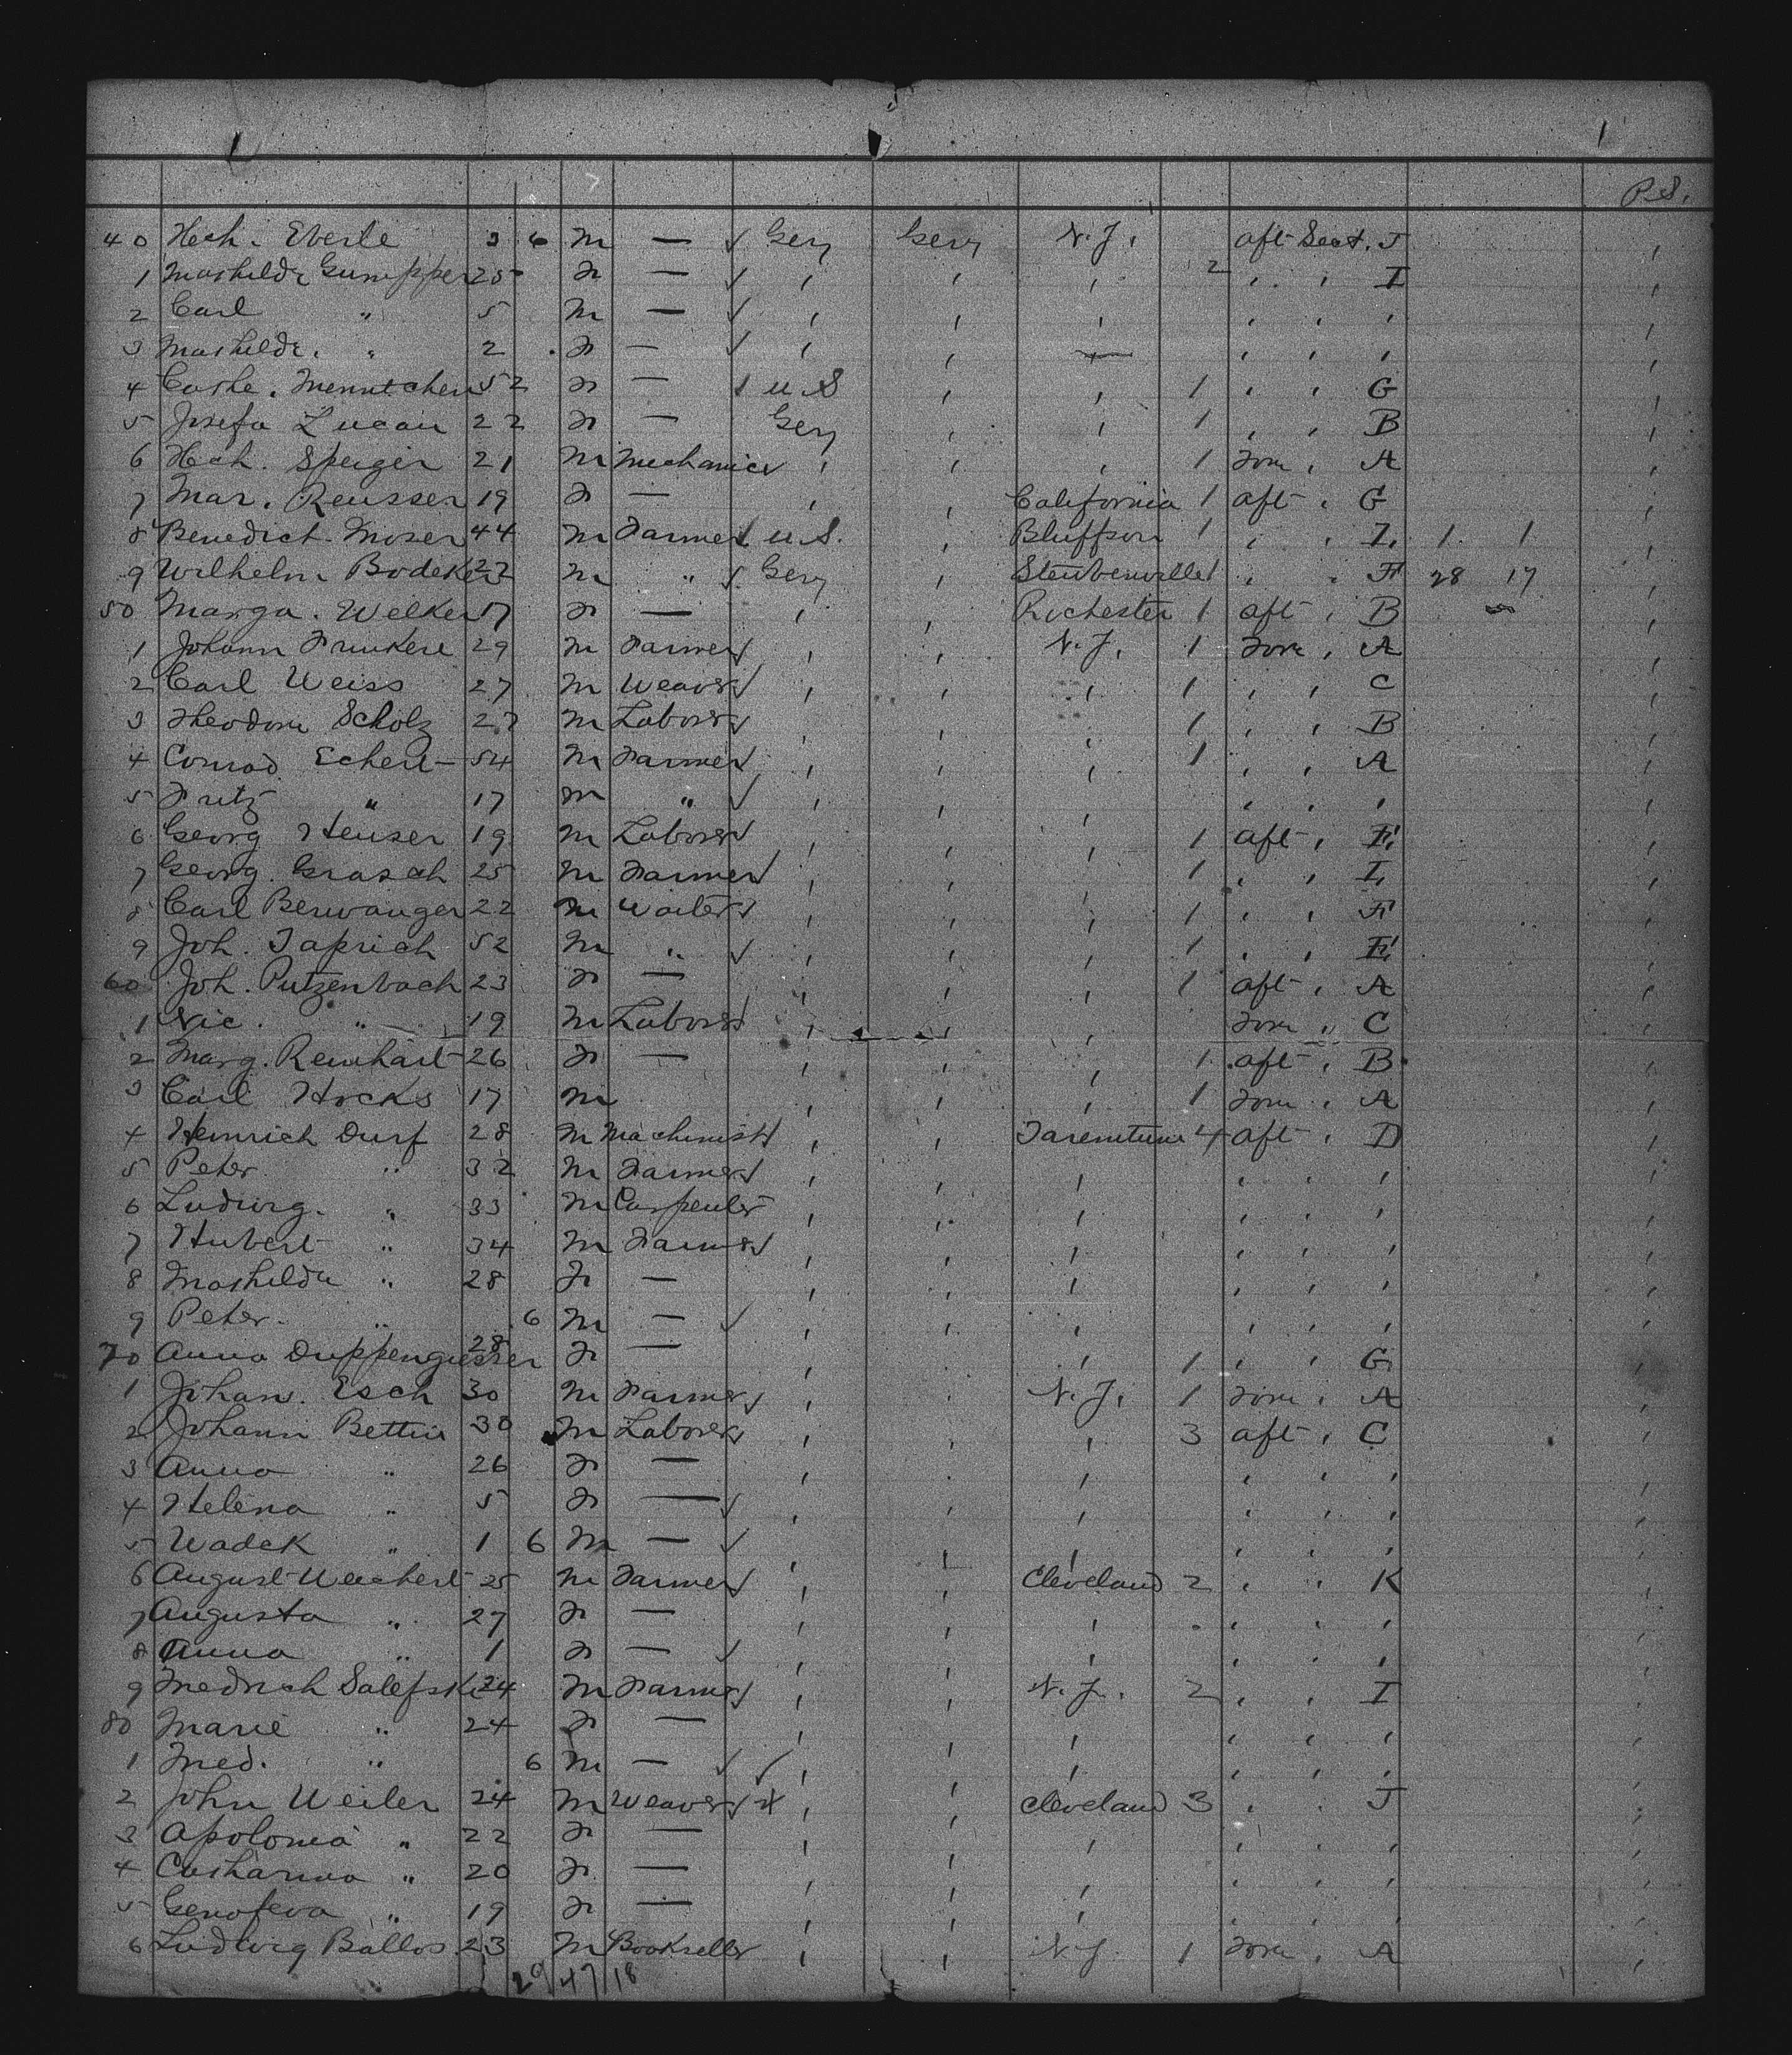 1 1
P.S.
40 Hch. Eberle 3 6 M — Gery Gery N.J. aft Sect. J
1 Mathilde Gumpper 25 F — , , , 2 , , I
2 Carl " 5 M — , , , , , ,
3 Mathilde " 2 F — , , , , ,
4 Cathe. 52 F — U.S , , 1 , , G
5 Josefa Lucan 22 F — Gery , , 1 , , B
6 Hch. Speiger 21 M Mechanic , , , 1 Fore , A
7 Mar. Reusser 19 F — , , California 1 aft , G
8 Benedict Moser 44 M Farmer U.S. , 1 , , I 1 1
9 Wilhelm Bodeker 22 M " Gery , Steubenville 1 , , F 28 17
50 Marga. Welker 17 F — , , Rochester 1 aft , B
1 Johann 29 M Farmer , , N.J. 1 Fore , A
2 Carl Weiss 27 M Weaver , , , 1 , , C
3 Theodore Scholz 27 M Laborer , , , 1 , , B
4 Conrad Echert 54 M Farmer , , , 1 , , A
5 Fritz " 17 M " , , , , , ,
6 Georg Heuser 19 M Laborer , , , 1 aft , E
7 Georg Grasch 25 M Farmer , , , 1 , , I
8 Carl Berwanger 22 M Waiter , , , 1 , , F
9 Joh. Taprich 52 M " , , , 1 , , E
60 Joh. Putzenbach 23 F — , , , 1 aft , A
1 Nic. " 19 M Laborer , , , Fore , C
2 Marg. Reinhart 26 F — , , , 1 aft , B
3 Carl Hocks 17 M , , , 1 Fore , A
4 Heinrich Durf 28 M Machinist , , 4 aft , D
5 Peter " 32 M Farmer , , , , , ,
6 Ludwig " 33 M Carpenter , , , , , ,
7 Hubert " 34 M Farmer , , , , , ,
8 Mathilde " 28 F — , , , , , ,
9 Peter " 6 M — , , , , , ,
70 Anna Duppengiesser 28 F — , , , 1 , , G
1 Johan. Esch 30 M Farmer , , N.J. 1 Fore , A
2 Johann Bettin 30 M Laborer , , , 3 aft , C
3 Anna " 26 F — , , , , , ,
4 Helena " 5 F — , , , , , ,
5 Wadek " 1 6 M — , , , , , ,
6 August Weichert 25 M Farmer , , Cleveland 2 , , K
7 Augusta " 27 F — , , , , , ,
8 Anna " 1 F — , , , , , ,
9 Friedrich Salefski 24 M Farmer , , N.J. 2 , , I
80 Marie " 24 F — , , , , , ,
1 Fried. " 6 M — , , , , , ,
2 John Weiler 24 M Weaver , , Cleveland 3 , , J
3 Apolonia " 22 F — , , , , , ,
4 Catharina " 20 F — , , , , , ,
5 Genofeva " 19 F — , , , , , ,
6 Ludwig Ballos 23 M Bookseller , , N.J. 1 Fore , A
29 47 18